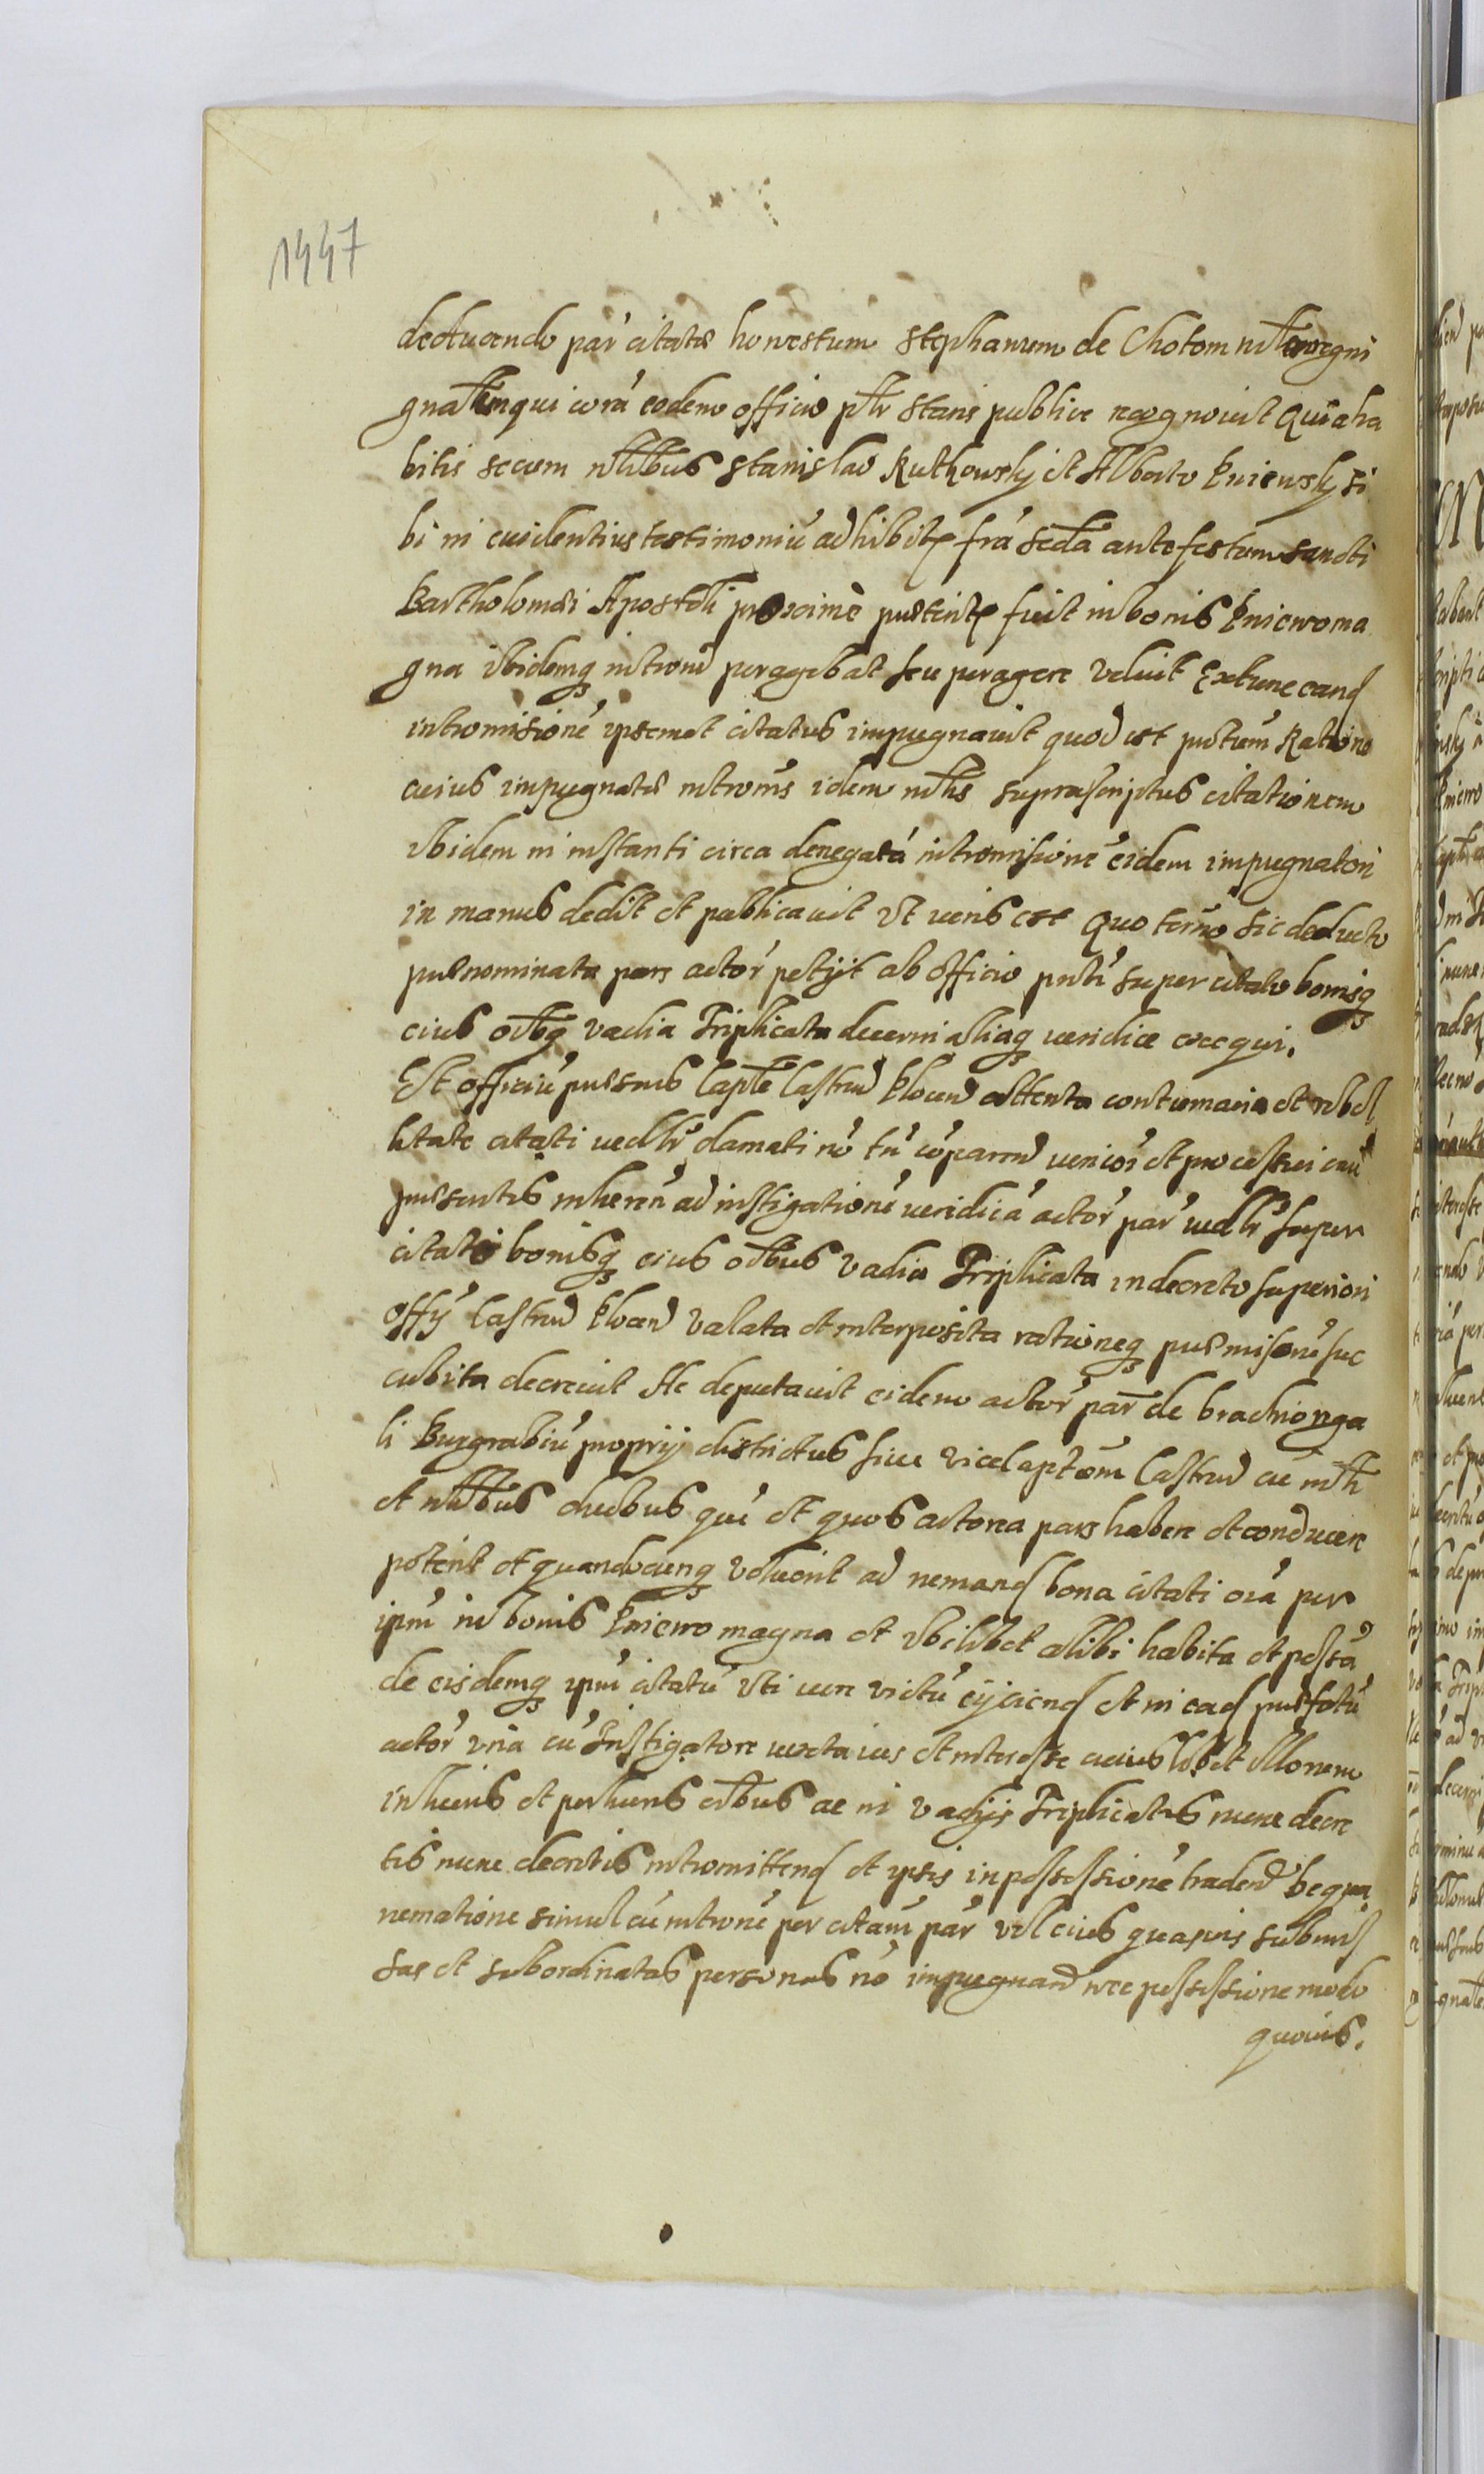 1447
deducendo par̃ citatæ honestum Stephanum de Chotom mrlem regni
gnalem qui corã eodem officio ptr stans publice recognouit Quia ha
bitis secum nlibus Stanislao Rutkowsky et Alberto Kniewsky si
bi in euidentius testimoniũ adhibitꝭ frã scda ante festum sancti
Bartholomæi Apostoli proximè præteritꝭ fuit in bonis Kniewo ma
gna ibidemq intromõ peragebat seu peragere voluit Extunc eand
intromisionẽ ipsemet citatus impugnauit quod est pictum Ratione
cuius impugnatæ intromis idem mrlis suprascriptus citationem
ibidem in instanti circa denegatã intromisionẽ eidem impugnatori
in manus dedit et publicauit vt uerũs est Quo termõ sic deducto
prænominata pars actor̃ petijt ab officio pnti super citato bonisq
eius oibq vadia Triplicata decerni aliaq ueridice exequi.
Et officiũ præsens Captle Castren Plocen attenta contumacia et rebel
litate citati uedlr̃ clamati nõ tñ cõparen uerior̃ et processui caũ
præsentis inheren̄ ad instigationẽ ueridicã actor̃ par̃ uedlr̃ super
citato bonisq eius oibus vadia Triplicata in decreto superiori
offÿ Castren Plocen valata et interposita rationeq præmisorũ suc
cubita decreuit Ac deputauit eidem actor̃ par̃ de brachio rega
li Burgrabiũ proprij districtus siue viceCaptom̃ Castren cũ mrli
et nlibus duobus quẽ et quos actorea pars habere et conducere
poterit et quandocunq voluerit ad neman̄d bona citati oiã per
ipm̃ in bonis Kniewo magna et vbilibet alibi habita et possã
de eisdemq ipm̃ citatũ vti iure victũ eijcien̄d et in ead præfatũ
actor̃ vnã cũ Instigatore iuxta ius et interesse cuiuslibet illorum
inhuens et perhuens oibus ac in vadijs Triplicatis nunc decre
tis nunc decretis intromitten̄d et ipsis in possessionẽ traden̄d beqpa
nematione simul cũ intromẽ per citatam̃ par̃ vel eius quasuis submis
sas et subordinatas personas nõ impugnan̄d nec possessione modo
quouis.